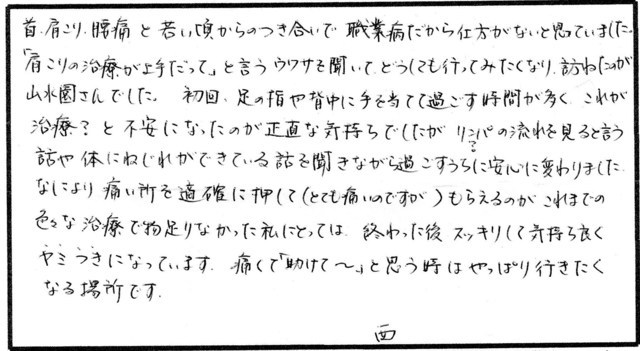 首.肩こり.腰痛 と 若い頃からのつき合いで 職業病だから仕方がないと思っていました。
「肩こりの治療が上手だって」と言うウワサを聞いて、どうしても行ってみたくなり、訪ねたのが
山水園さんでした。 初回、足の指や背中に手を当てて過ごす時間が多く、これが
治療？と不安になったのが正直な気持ちでしたが リンパの流れを見ると言う
?
話や 体にねじれができている話を聞きながら過ごすうちに安心に変わりました.
なにより 痛い所を適確に押して(とても痛いのですが)もらえるのが これまでの
色々な治療で物足りなかった私にとっては、終わった後 スッキリして気持ち良く
ヤミつきになっています. 痛くて「助けて〜」と思う時はやっぱり行きたく
なる場所です.
西